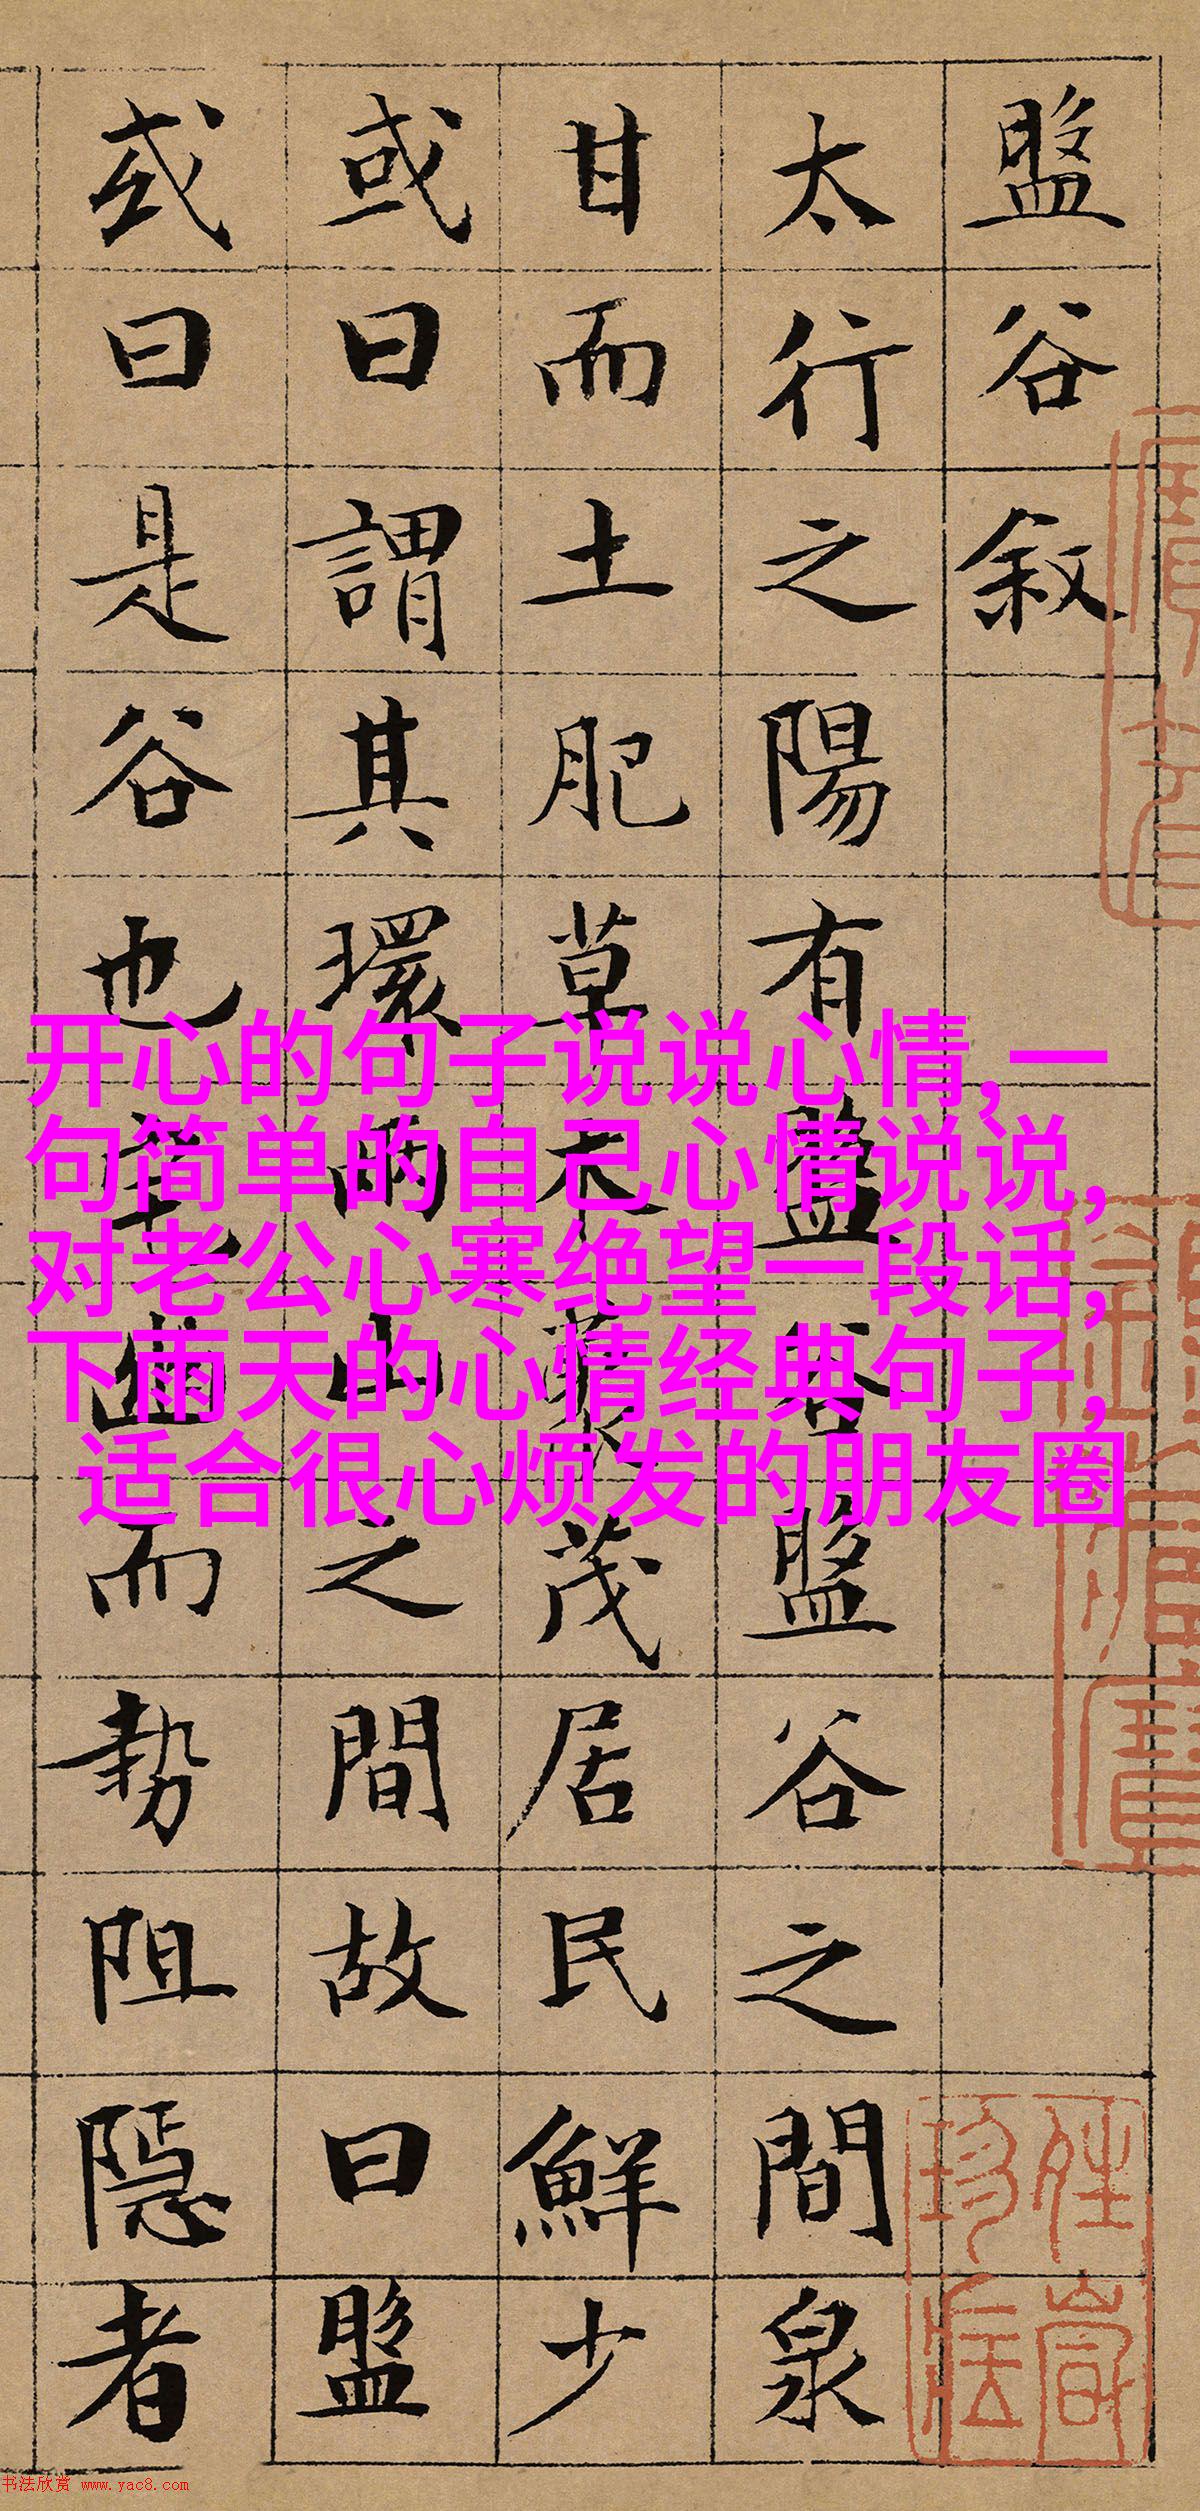 盤谷叙
太行之陽有盤谷盤谷之間泉
甘而土肥草木藂茂居民鮮少
或曰謂其環兩山之間故曰盤
或曰是谷也宅幽而勢阻隱者
开心的句子说说心情,一
句简单的自己心情说说,
对老公心寒绝望一段话,
下雨天的心情经典句子,
适合很心烦发的朋友圈
书法欣赏 www.yac8.com